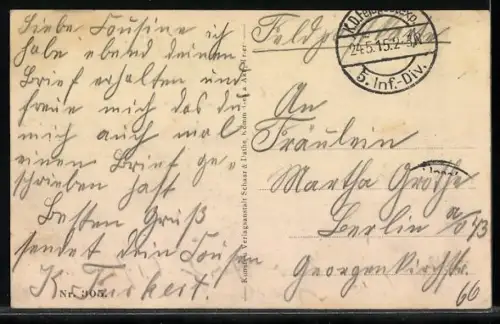 Liebe Cousine ich
habe ebend deinen
Brief erhalten und
freue mich das du
mich auch mal
einen Brief ge-
schrieben hast
Besten Gruß
sendet dein Cousen
K.
Nr. 305.
Kunst- Verlagsanstalt Schaar & Dathe, Komm.-Ges. a. Akt., Trier.
Feldpostkarte
K.D. Feldpostexp.
24.5.15.
5. Inf.-Div.
An
Fräulein
Martha Grothe
Berlin
Georgenkirchstr.
66